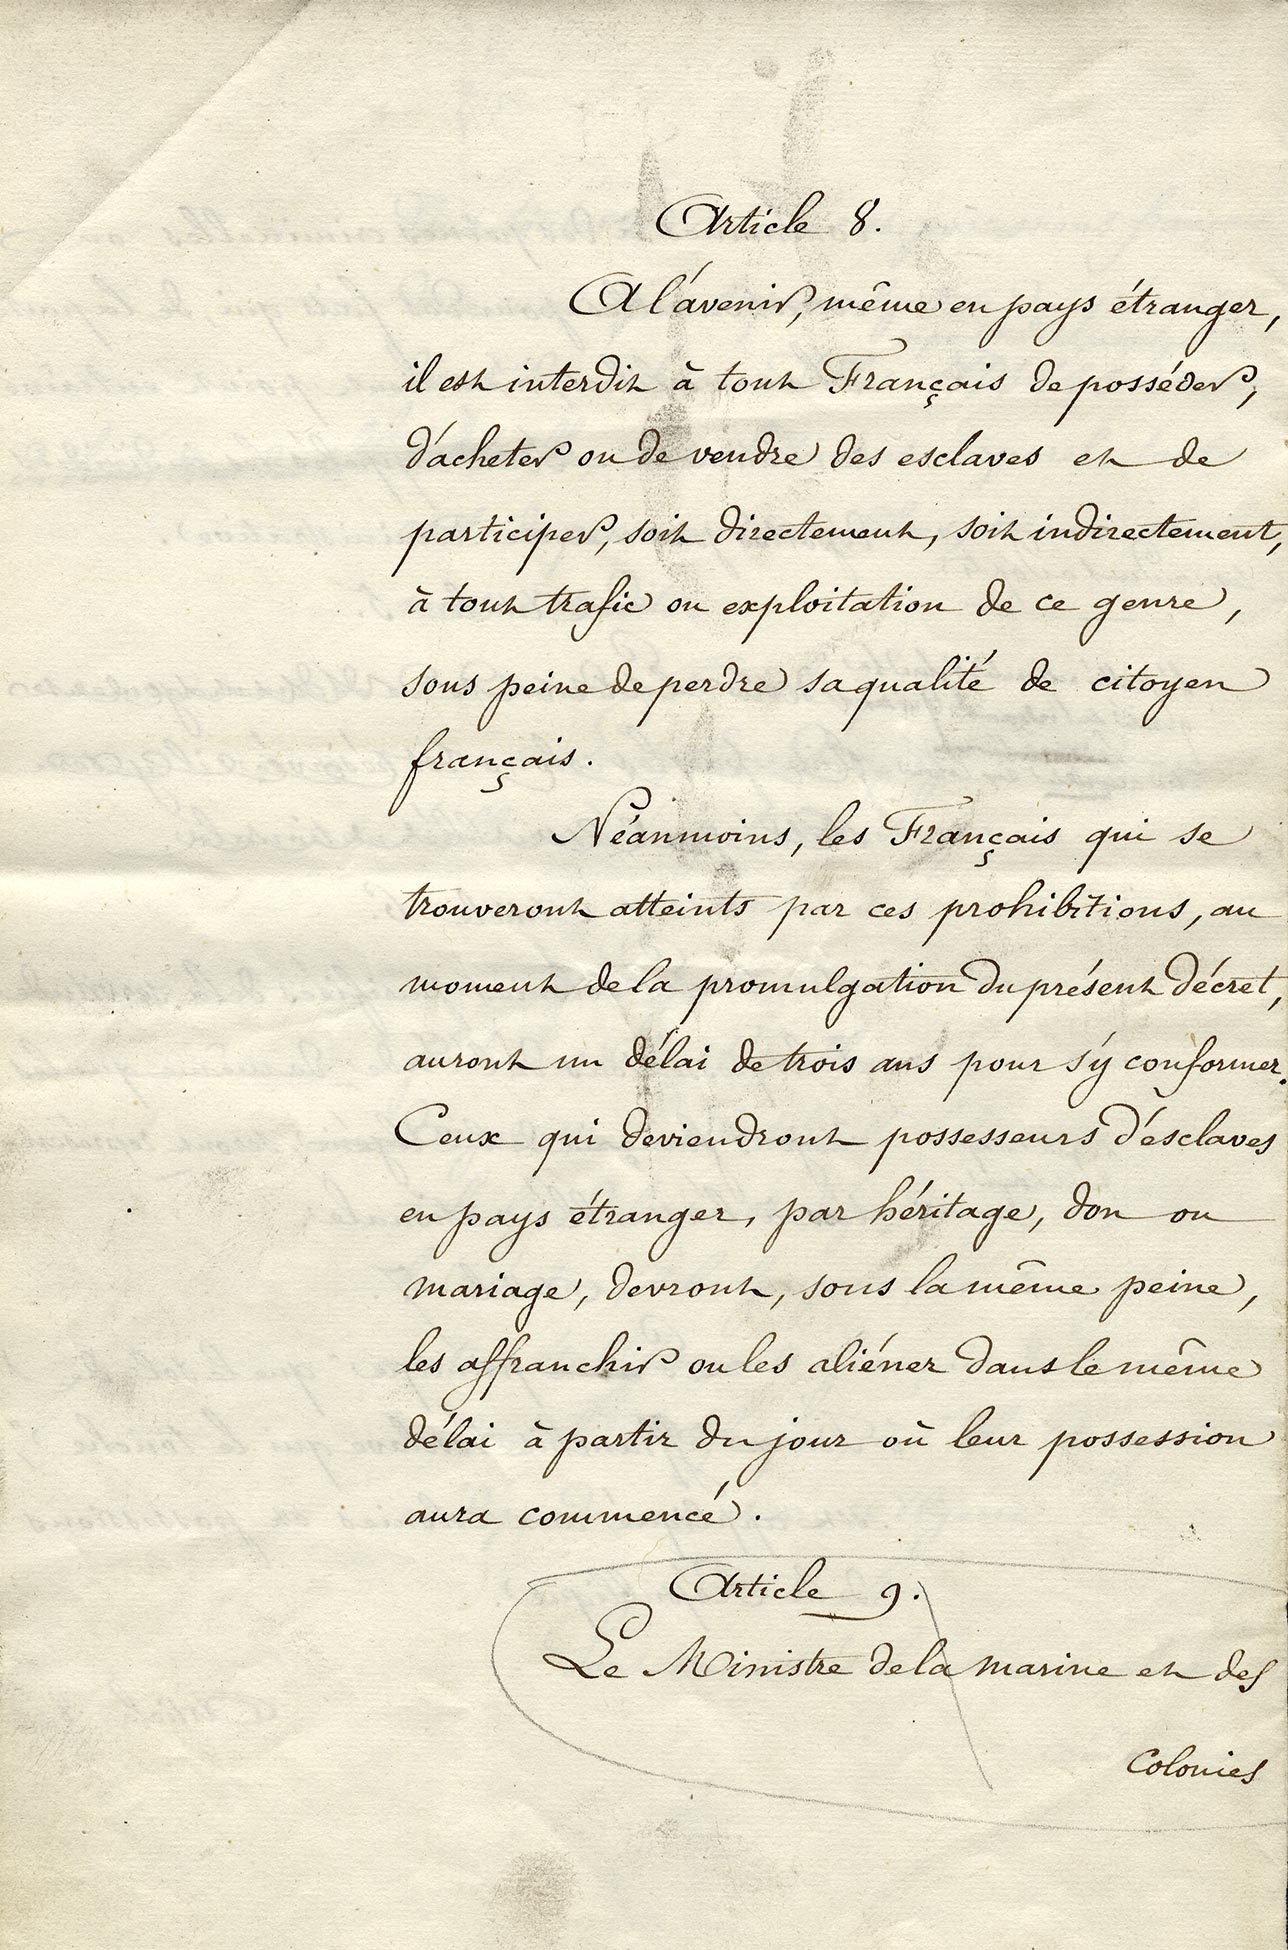 Article 8.
A l'avenir, même en pays étranger,
il est interdit à tout Français de posséder,
d'acheter ou de vendre des esclaves et de
participer, soit directement, soit indirectement,
à tout trafic ou exploitation de ce genre,
sous peine de perdre sa qualité de citoyen
français.
Néanmoins, les Français qui se
trouveront atteints par ces prohibitions, au
moment de la promulgation du présent décret,
auront un délai de trois ans pour s'y conformer.
Ceux qui deviendront possesseurs d'esclaves
en pays étranger, par héritage, don ou
mariage, devront, sous la même peine,
les affranchir ou les aliéner dans le même
délai à partir du jour où leur possession
aura commencé.
Article 9.
Le Ministre de la marine et des
Colonies